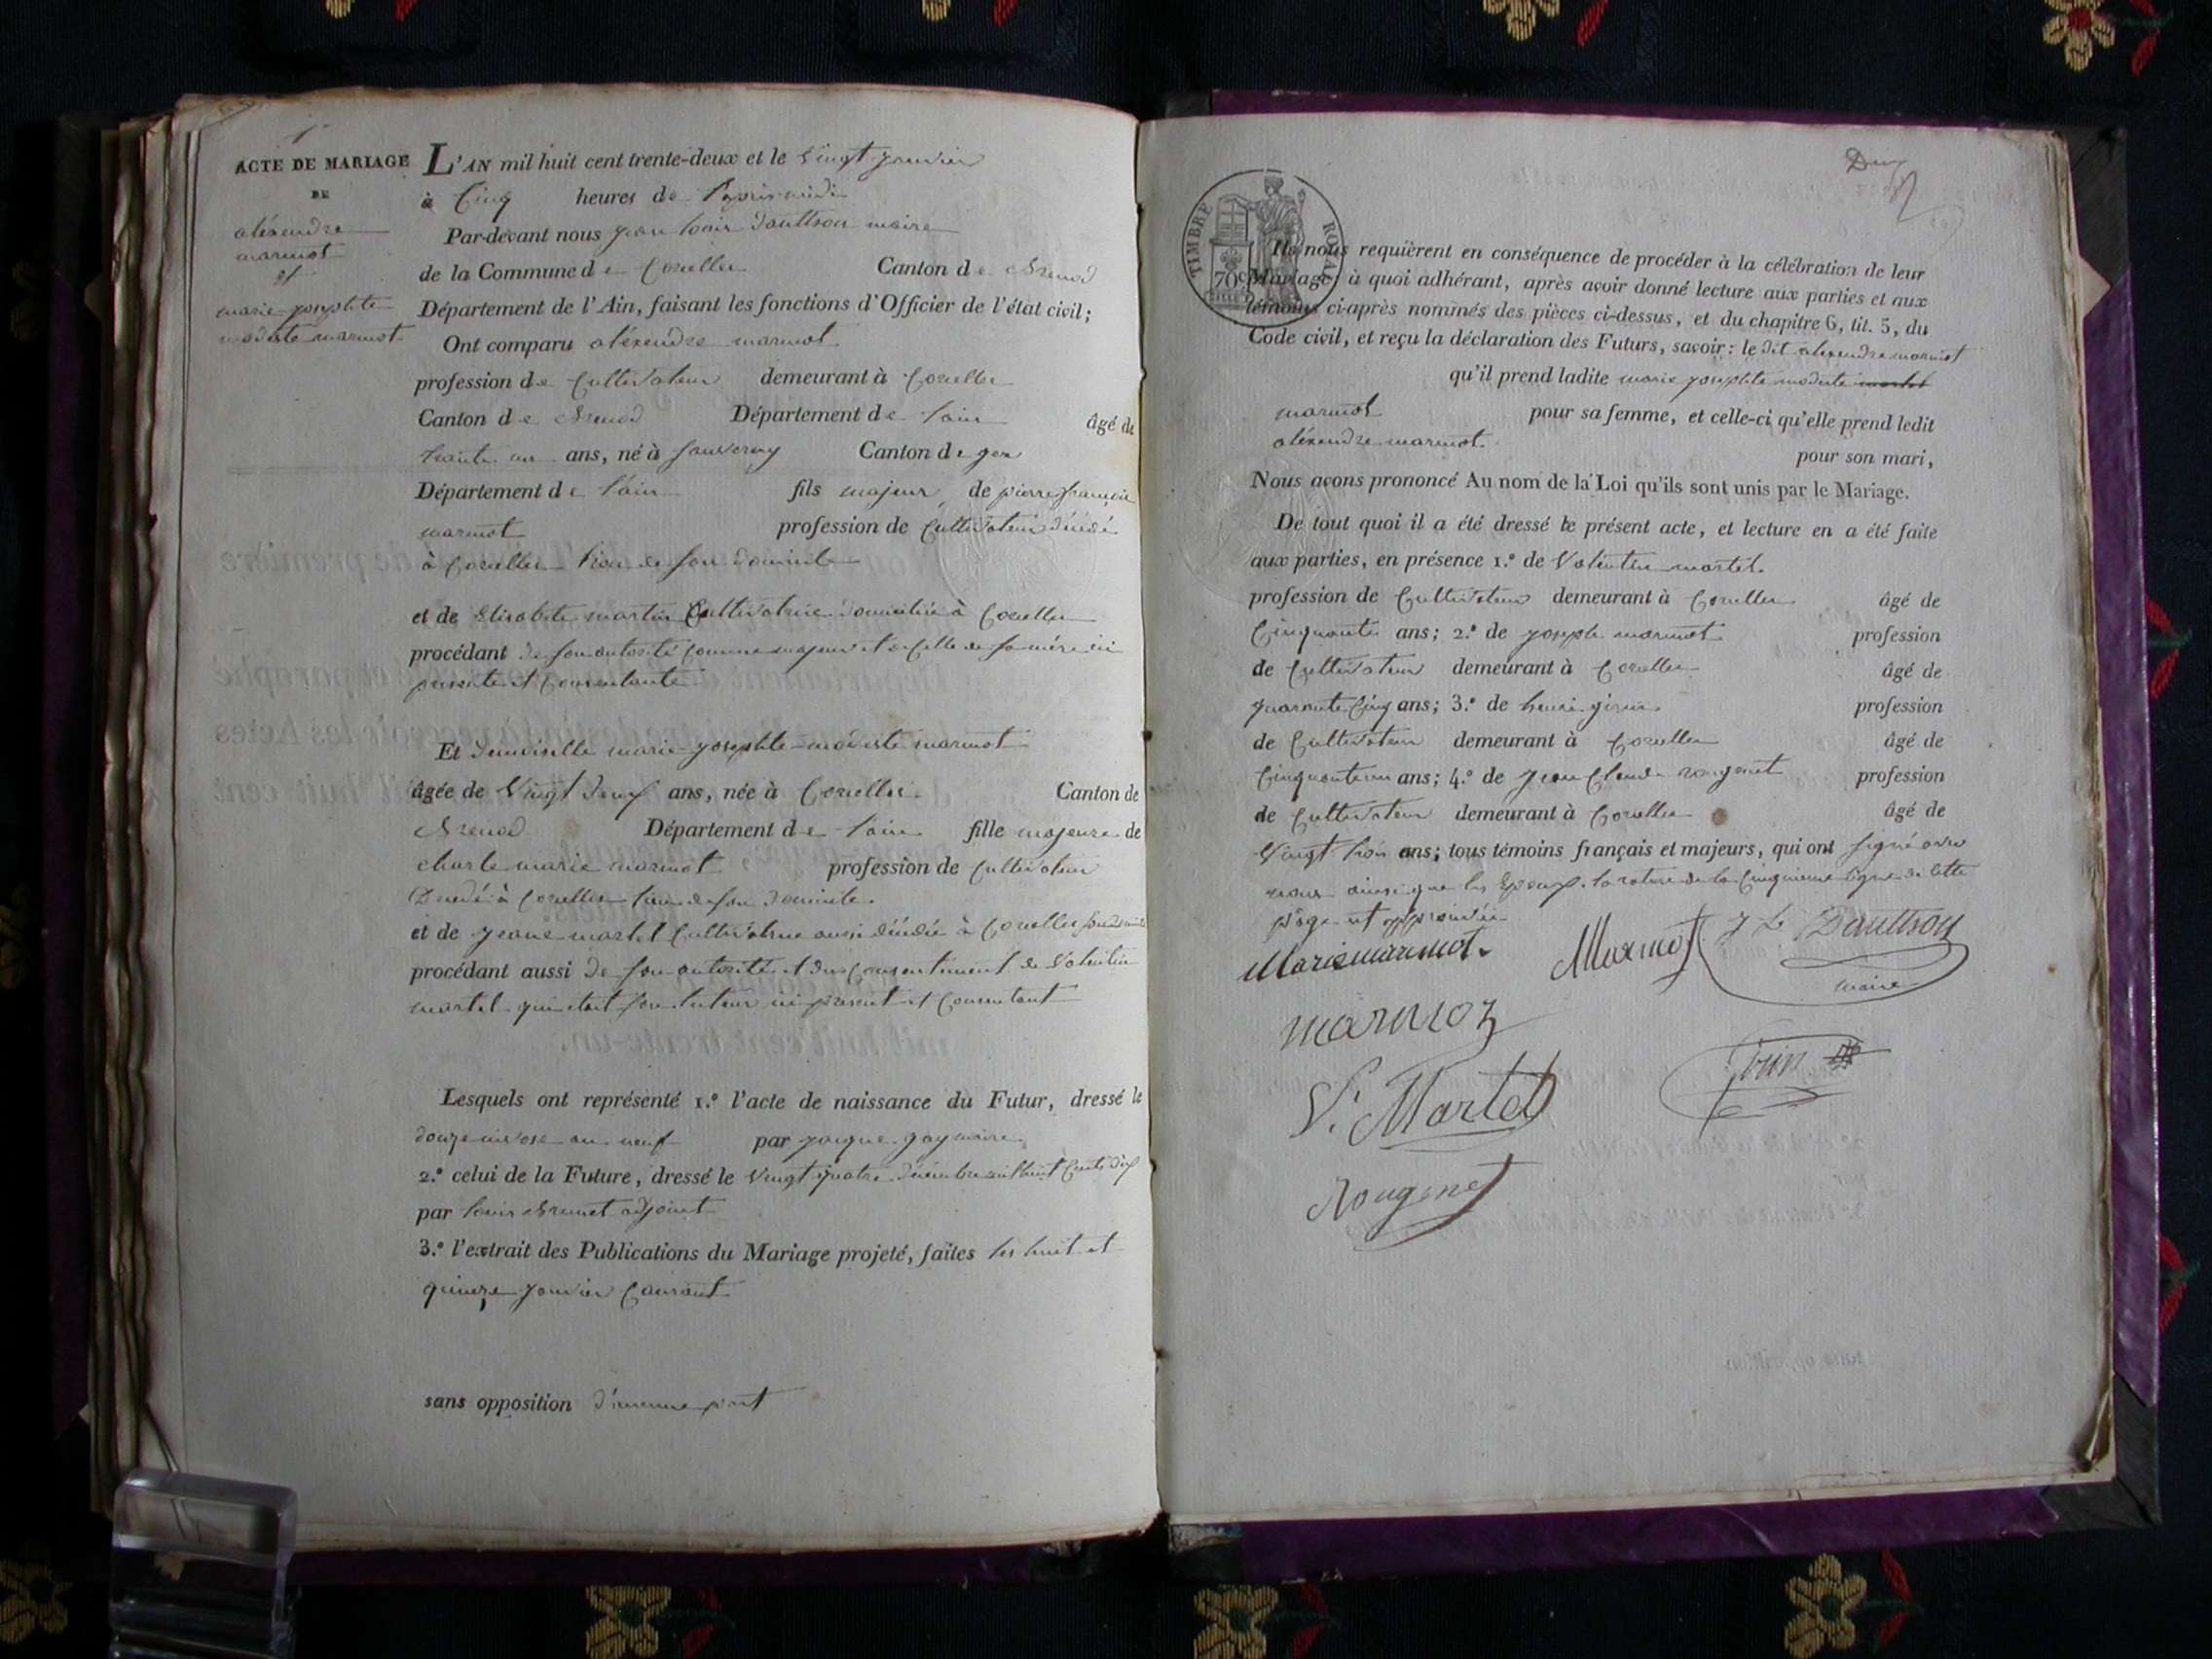 1
ACTE DE MARIAGE
DE
aléxendre
marmot
et
marie josephte
modeste marmot
L'AN mil huit cent trente-deux et le vingt janvier
à Cinq heures de l'aprés midi
Par-devant nous jean louis Daulthou maire
de la Commune de Corcelles Canton de Brenod
Département de l'Ain, faisant les fonctions d'Officier de l'état civil;
Ont comparu aléxendre marmot
profession de Cultivateur demeurant à Corcelles
Canton de Brenod Département de l'ain âgé de
trente un ans, né à Sauverny Canton de gex
Département de l'ain fils majeur de pierre françois
marmot profession de Cultivateur décédé
à Corcelles lieu de son domicile
et de Elisabete martin Cultivatrice domiciliée à Corcelles
procédant de son autorité comme majeur et de celle de sa mére ici
presente et Consentante
Et demoiselle marie josephte modeste marmot
âgée de Vingt deux ans, née à Corcelles Canton de
Brenod Département de l'ain fille majeure de
charle marie marmot profession de Cultivateur
Decedé à Corcelles lieu de son domicile
et de jeane martel Cultivatrice aussi décédée à Corcelles son domicile
procédant aussi de son autorité et du Consentement de Valentin
martel qui étoit son tuteur ici present et Consentant
Lesquels ont représenté 1.º l'acte de naissance du Futur, dressé le
douze nivose an neuf par jacque gay maire
2.º celui de la Future, dressé le Vingt quatre décembre mil huit Cents dix
par louis Brunet adjoint
3.º l'extrait des Publications du Mariage projeté, faites les huit et
quinze janvier Courant
sans opposition d'aucune part
Deux
TIMBRE ROYAL
70 c
Ils nous requièrent en conséquence de procéder à la célébration de leur
Mariage; à quoi adhérant, après avoir donné lecture aux parties et aux
témoins ci-après nommés des pièces ci-dessus, et du chapitre 6, tit. 5, du
Code civil, et reçu la déclaration des Futurs, savoir: le dit alexendre marmot
qu'il prend ladite marie josephte modeste martel
marmot pour sa femme, et celle-ci qu'elle prend ledit
aléxendre marmot
pour son mari,
Nous avons prononcé Au nom de la Loi qu'ils sont unis par le Mariage.
De tout quoi il a été dressé le présent acte, et lecture en a été faite
aux parties, en présence 1.º de Valentin martel
profession de Cultivateur demeurant à Corcelles âgé de
Cinquante ans; 2.º de joseph marmot profession
de Cultivateur demeurant à Corcelles âgé de
quarante Cinq ans; 3.º de henri girin profession
de Cultivateur demeurant à Corcelles âgé de
Cinquante un ans; 4.º de jean Claude rougemet profession
de Cultivateur demeurant à Corcelles âgé de
Vingt trois ans; tous témoins français et majeurs, qui ont signé avec
nous ainsi que les Epoux. la rature de la Cinquieme ligne de cette
page est approuvée
Marie marmot
Marmot
J L Daulthou
maire
marmoz
Girin
V. Martel
Rougemet